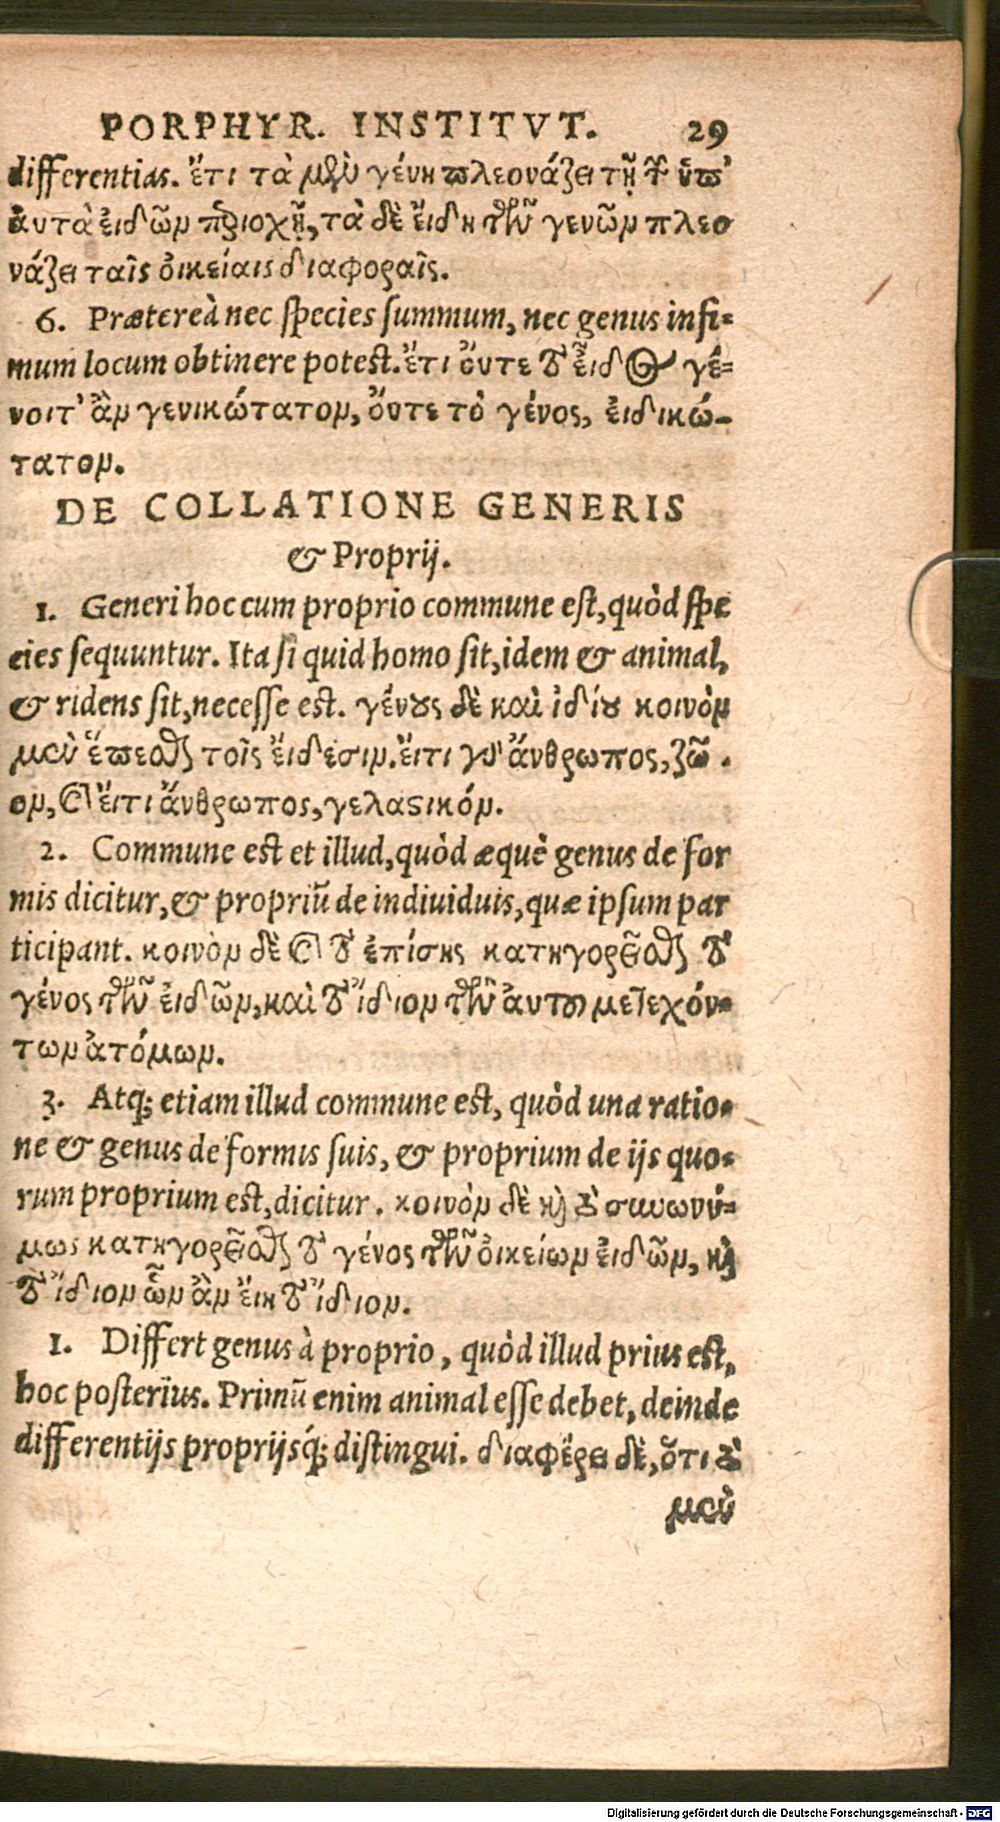 PORPHYR. INSTITVT. 29
differentias. ἔτι τὰ μὲν γένη πλεονάζει τῇ τῶν ὑπ'
ἀυτὰ ἐιδῶν περιοχῇ, τὰ δὲ ἔιδη τῶν γενῶν πλεο
νάζει ταῖς ὀικείαις διαφοραῖς.
6. Prætereà nec species summum, nec genus infi-
mum locum obtinere potest. ἔτι ὄυτε τὸ ἔιδος γέ-
νοιτ' ἂν γενικώτατον, ὄυτε τὸ γένος, ἐιδικώ-
τατον.
DE COLLATIONE GENERIS
& Proprij.
1. Generi hoc cum proprio commune est, quòd spe
cies sequuntur. Ita si quid homo sit, idem & animal,
& ridens sit, necesse est. γένους δὲ καὶ ἰδίου κοινὸν
μὲν ἕπεσθαι τοῖς ἔιδεσιν. ἔιτι γὰρ ἄνθρωπος, ζῶ
ον, καὶ ἔιτι ἄνθρωπος, γελαϛικόν.
2. Commune est et illud, quòd æquè genus de for
mis dicitur, & propriū de indiuiduis, quæ ipsum par
ticipant. κοινὸν δὲ καὶ τὸ ἐπίσης κατηγορεῖσθαι τὸ
γένος τῶν ἐιδῶν, καὶ τὸ ἴδιον τῶν ἀυτοῦ μετεχόν-
των ἀτόμων.
3. Atq; etiam illud commune est, quòd una ratio-
ne & genus de formis suis, & proprium de ijs quo-
rum proprium est, dicitur. κοινὸν δὲ καὶ τὸ συνωνύ-
μως κατηγορεῖσθαι τὸ γένος τῶν ὀικείων ἐιδῶν, καὶ
τὸ ἴδιον ὧν ἂν ἔιη τὸ ἴδιον.
1. Differt genus à proprio, quòd illud prius est,
hoc posterius. Primū enim animal esse debet, deinde
differentijs proprijsq́; distingui. διαφέρει δὲ, ὅτι τὸ
μὲν
Digitalisierung gefördert durch die Deutsche Forschungsgemeinschaft - DFG